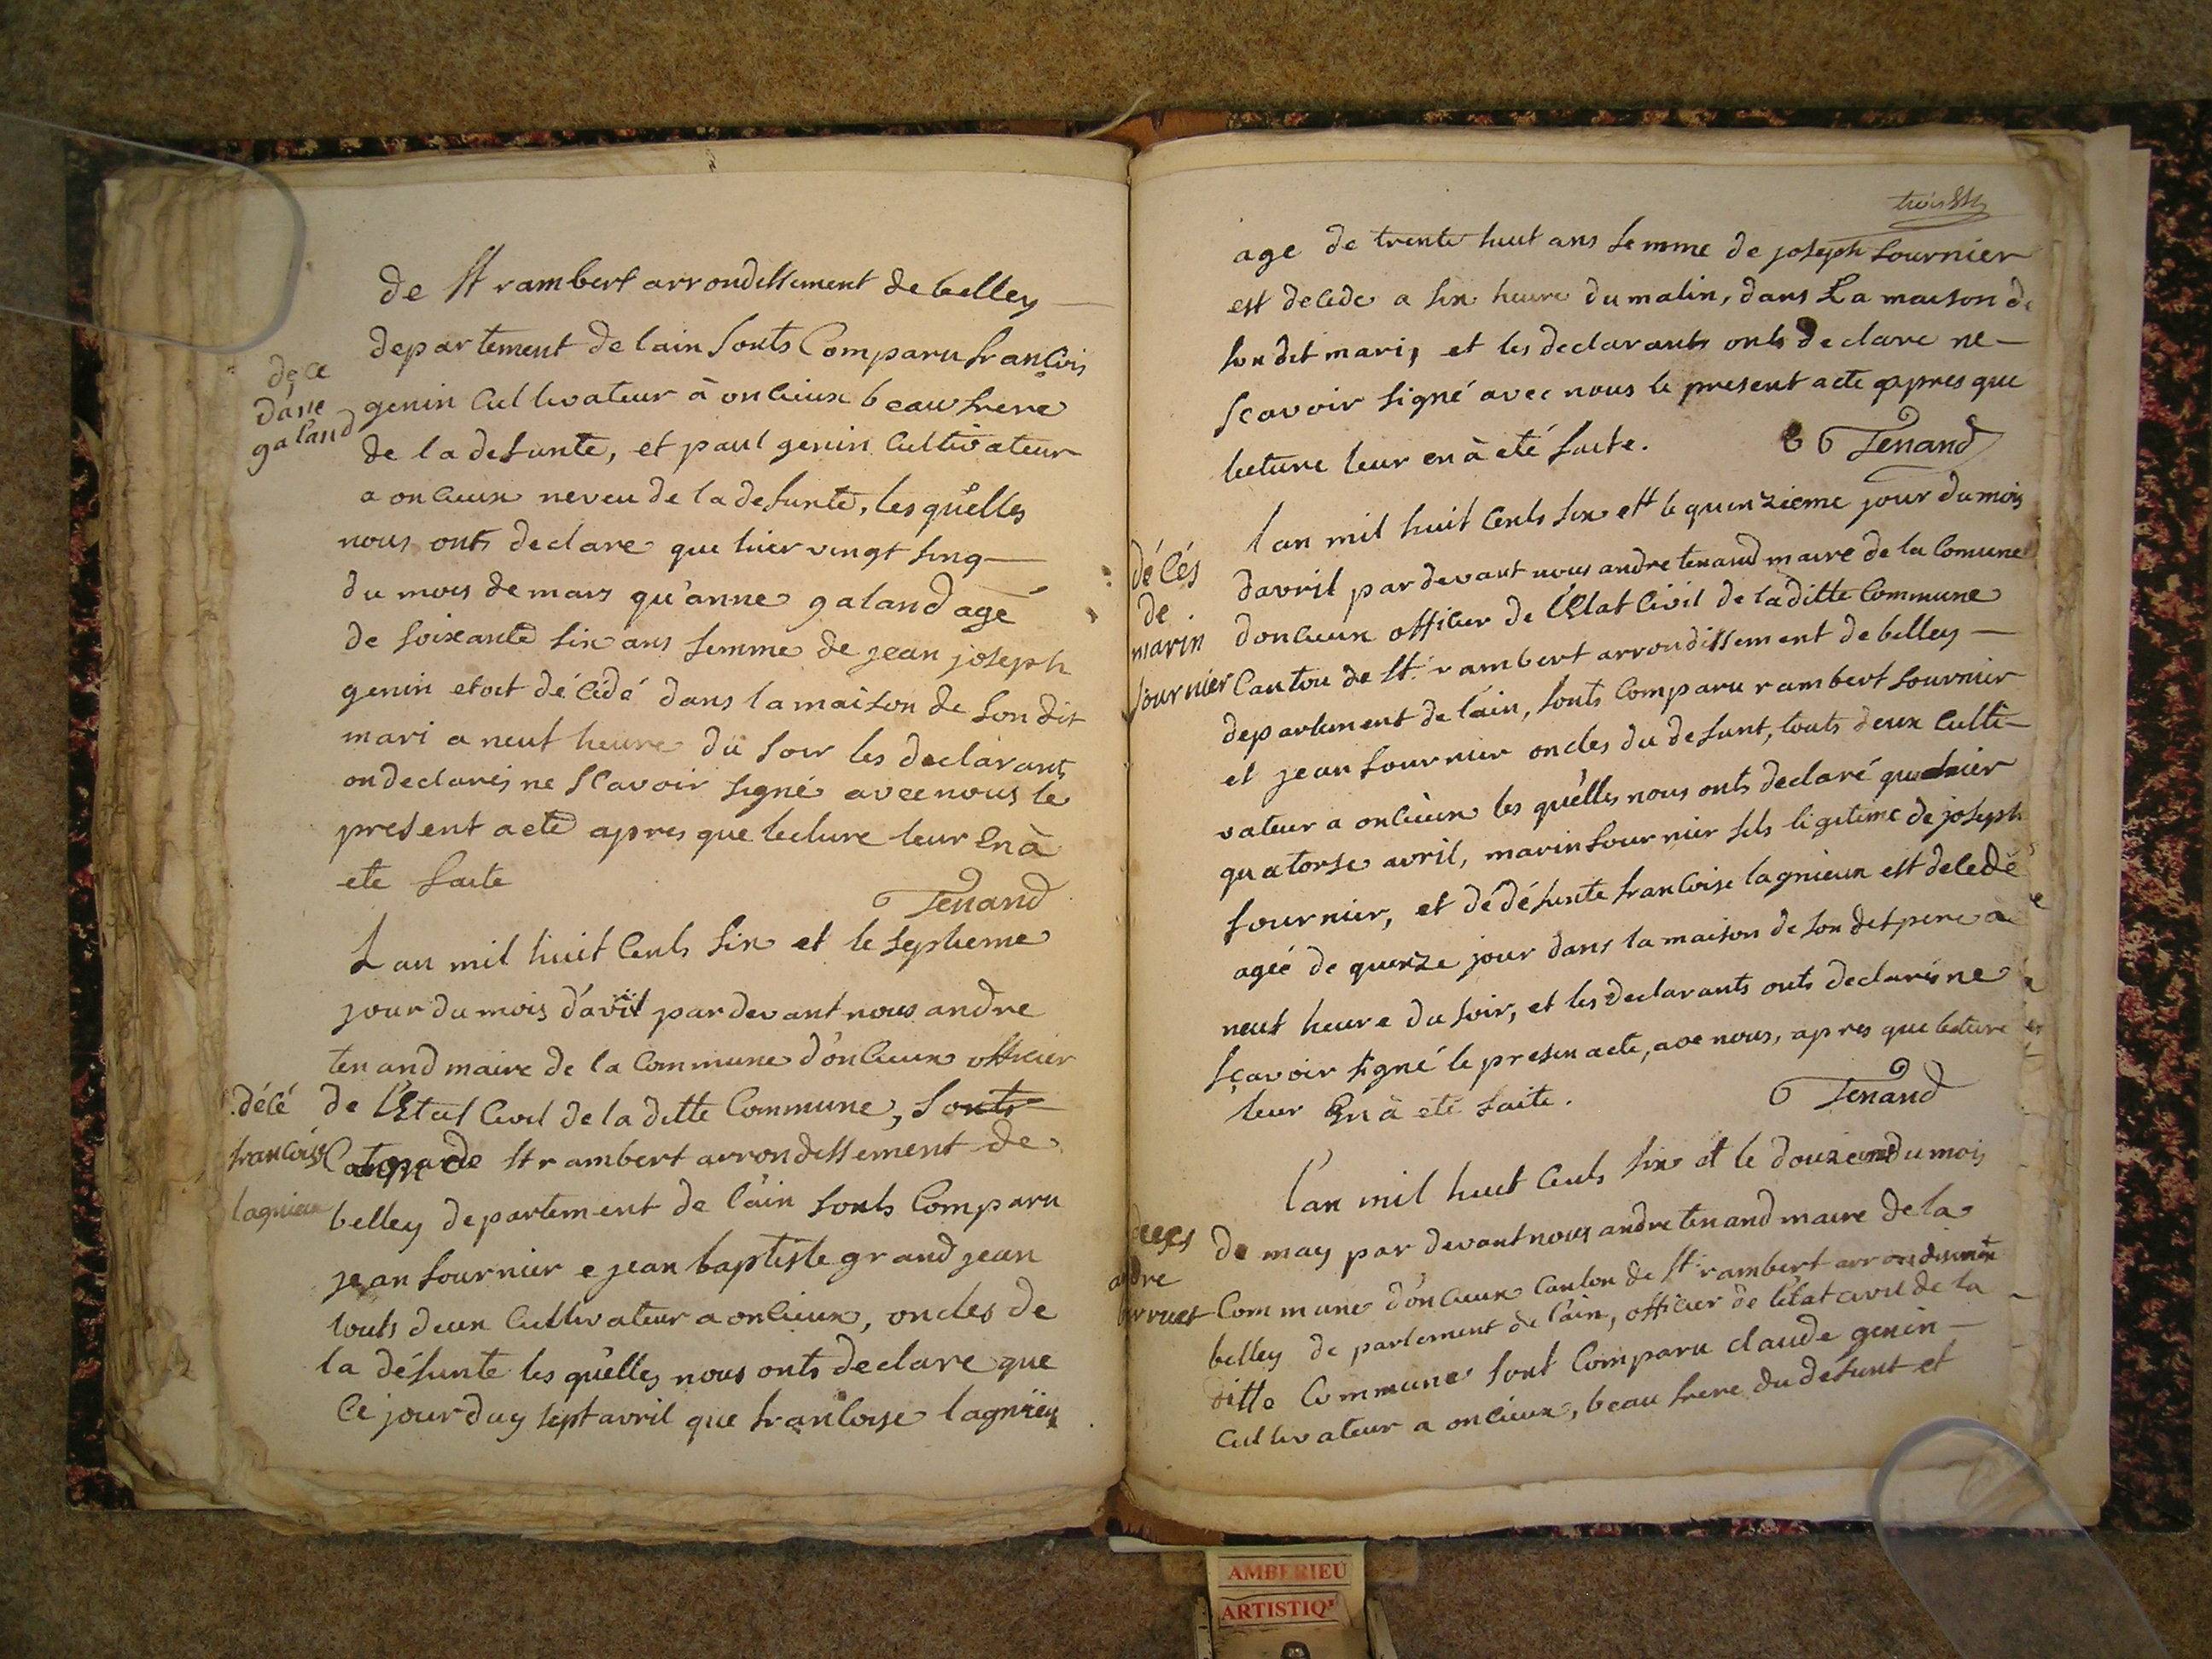 de St rambert arrondissement de belley
departement de lain sonts Comparu francois
déce
d'ane
galand
genin Cultivateur à oncieux beau frere
de la defunte, et paul genin Cultivateur
a oncieux neveu de la defunte, les qu'elles
nous onts declare que hier vingt sinq
du mois de mars qu'anne galand agé
de soixante six ans femme de jean joseph
genin etoit décédé dans la maison de son dit
mari a neuf heure du soir les declarants
on declarés ne scavoir signé avec nous le
present acte apres que lecture leur en à
ete faite
Tenand
Lan mil huit Cents six et le septieme
jour du mois d'avril par devant nous andre
tenand maire de la Commune d'oncieux officier
décé
francoise
lagnieux
de l'Etat Civil de la ditte Commune, sonts
Canton de St rambert arrondissement de
belley departement de l'ain sonts Comparu
jean fournier e jean baptiste grand jean
touts deux Cultivateur a oncieux, oncles de
la défunte les qu'elles nous onts declare que
Ce jourduy sept avril que francoise lagnieux
age de trente huit ans femme de joseph fournier
est decede a six heure du matin, dans La maison de
son dit mari, et les declarants onts declare ne
scavoir signé avec nous le present acte apres que
lecture leur en à eté faite.
Tenand
lan mil huit Cents six et le quinzieme jour du mois
décés
de
marin
fournier
davril par devant nous andre tenand maire de la Comune
doncieux officier de l'Etat Civil de la ditte Commune
Canton de St rambert arrondissement de belley
departement de l'ain, sonts Comparu rambert fournier
et jean fournier oncles du defunt, touts deux Culti-
vateur a oncieux les qu'elles nous onts declaré que hier
quatorse avril, marin fournier fils ligitime de joseph
fournier, et dé défunte francoise lagnieux est decedé
agée de quinze jour dans la maison de son dit pere a
neuf heure du soir, et les declarants onts declarés ne
sçavoir signé le presen acte, ave nous, apres que lecture
leur En à eté faite.
Tenand
l'an mil huit Cents six et le douzieme du mois
deces
andre
de may par devant nous andre tenand maire de la
Commune d'oncieux Canton de St rambert arrondisment
belley departement de l'ain, officier de l'état civil de la
ditte Commune sont Comparu claude genin
Cultivateur a oncieux, beau frere du défunt et
AMBERIEU
ARTISTIQ'